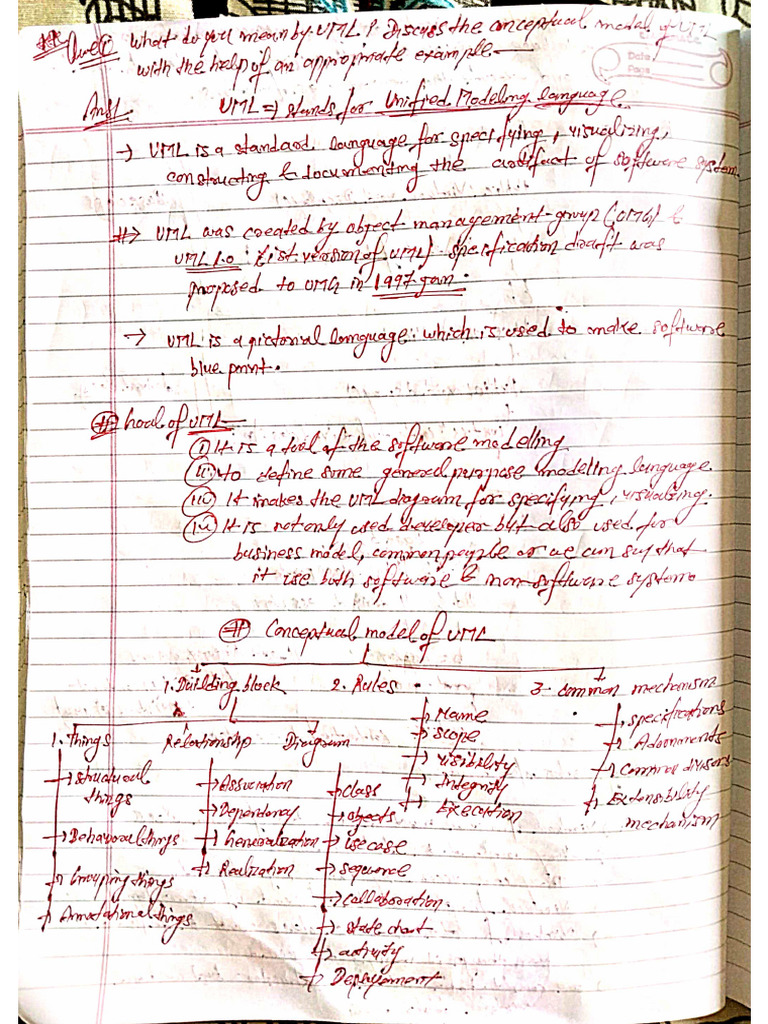 ** Que(i) What do you mean by UML? Discuss the conceptual model of UML
with the help of an appropriate example —
Date
Page
Ans1. UML => stands for Unified Modeling language
→ UML is a standard language for specifying, visualizing,
constructing & documenting the artifact of software system
#→ UML was created by object management group (OMG) &
UML 1.0 (first version of UML) specification draft was
proposed to OMG in 1997 year.
→ UML is a pictorial language which is used to make software
blue print.
# Goal of UML
(i) It is a tool of the software modelling
(ii) to define some general purpose modeling language.
(iii) It makes the UML diagram for specifying, visualizing.
(iv) It is not only used developer but also used for
business model, common people or we can say that
it use both software & non-software system
# Conceptual model of UML
1. Building block 2. Rules 3. common mechanism
1. Things Relationship Diagram
→ Name
→ scope
→ visibility
→ Integrity
→ Execution
→ specifications
→ Adornments
→ Common divisors
→ Extensibility
mechanism
→ structural
things
→ Behavioral things
→ Grouping things
→ Annotational things
→ Association
→ Dependency
→ Generalization
→ Realization
→ class
→ objects
→ use case
→ sequence
→ collaboration
→ state chart
→ activity
→ Deployement